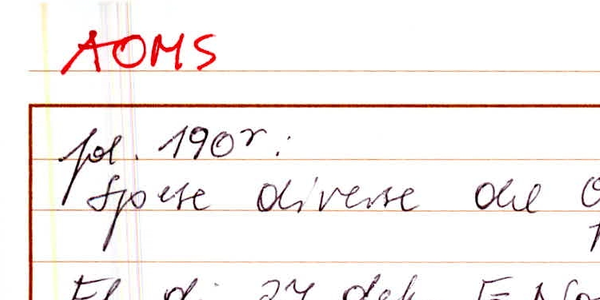 AOMS
fol. 190r:
Spese diverse del
El di 27 det.